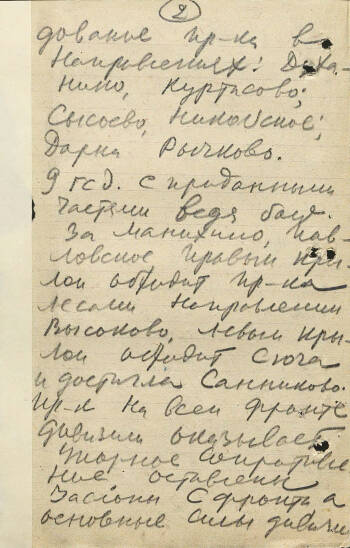 2
дование пр-ка в
направлениях: Духа-
нино, Куртасово,
Сысоево, Никольское,
Дарна Рычково.
9 гсд. с приданными
частями ведя бой
за Манихино, Пав-
ловское правым кры-
лом обходит пр-ка
лесами направлении
Высоково, левым кры-
лом обходит с юга
и достигла Санниково.
Пр-к на всем фронте
дивизии оказывает
упорное сопротивле
ние оставлен
заслоны с фронта а
основные силы дивизии